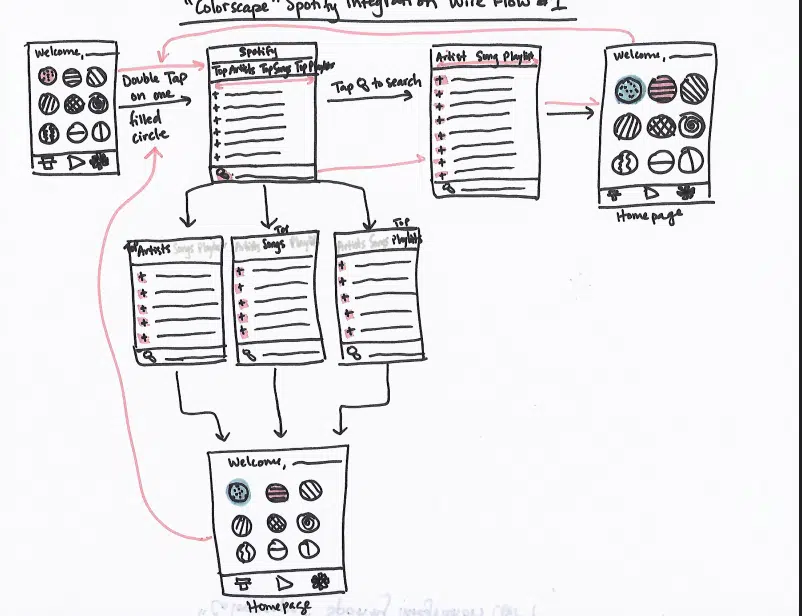 "Colorscape" Spotify Integration Wire Flow #1
Welcome,
Double Tap
on one
filled
circle
Spotify
Top Artists Top Songs Top Playlists
Tap to search
Artist Song Playlist
Welcome,
Homepage
Top Artists Songs Playlists
Top
Artists Songs Playlists
Top
Artists Songs Playlists
Welcome,
Homepage